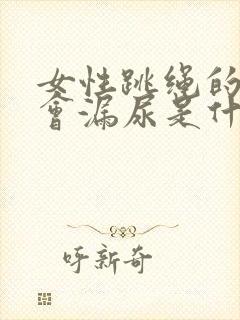 女性跳绳的
会漏尿是什
呼新奇